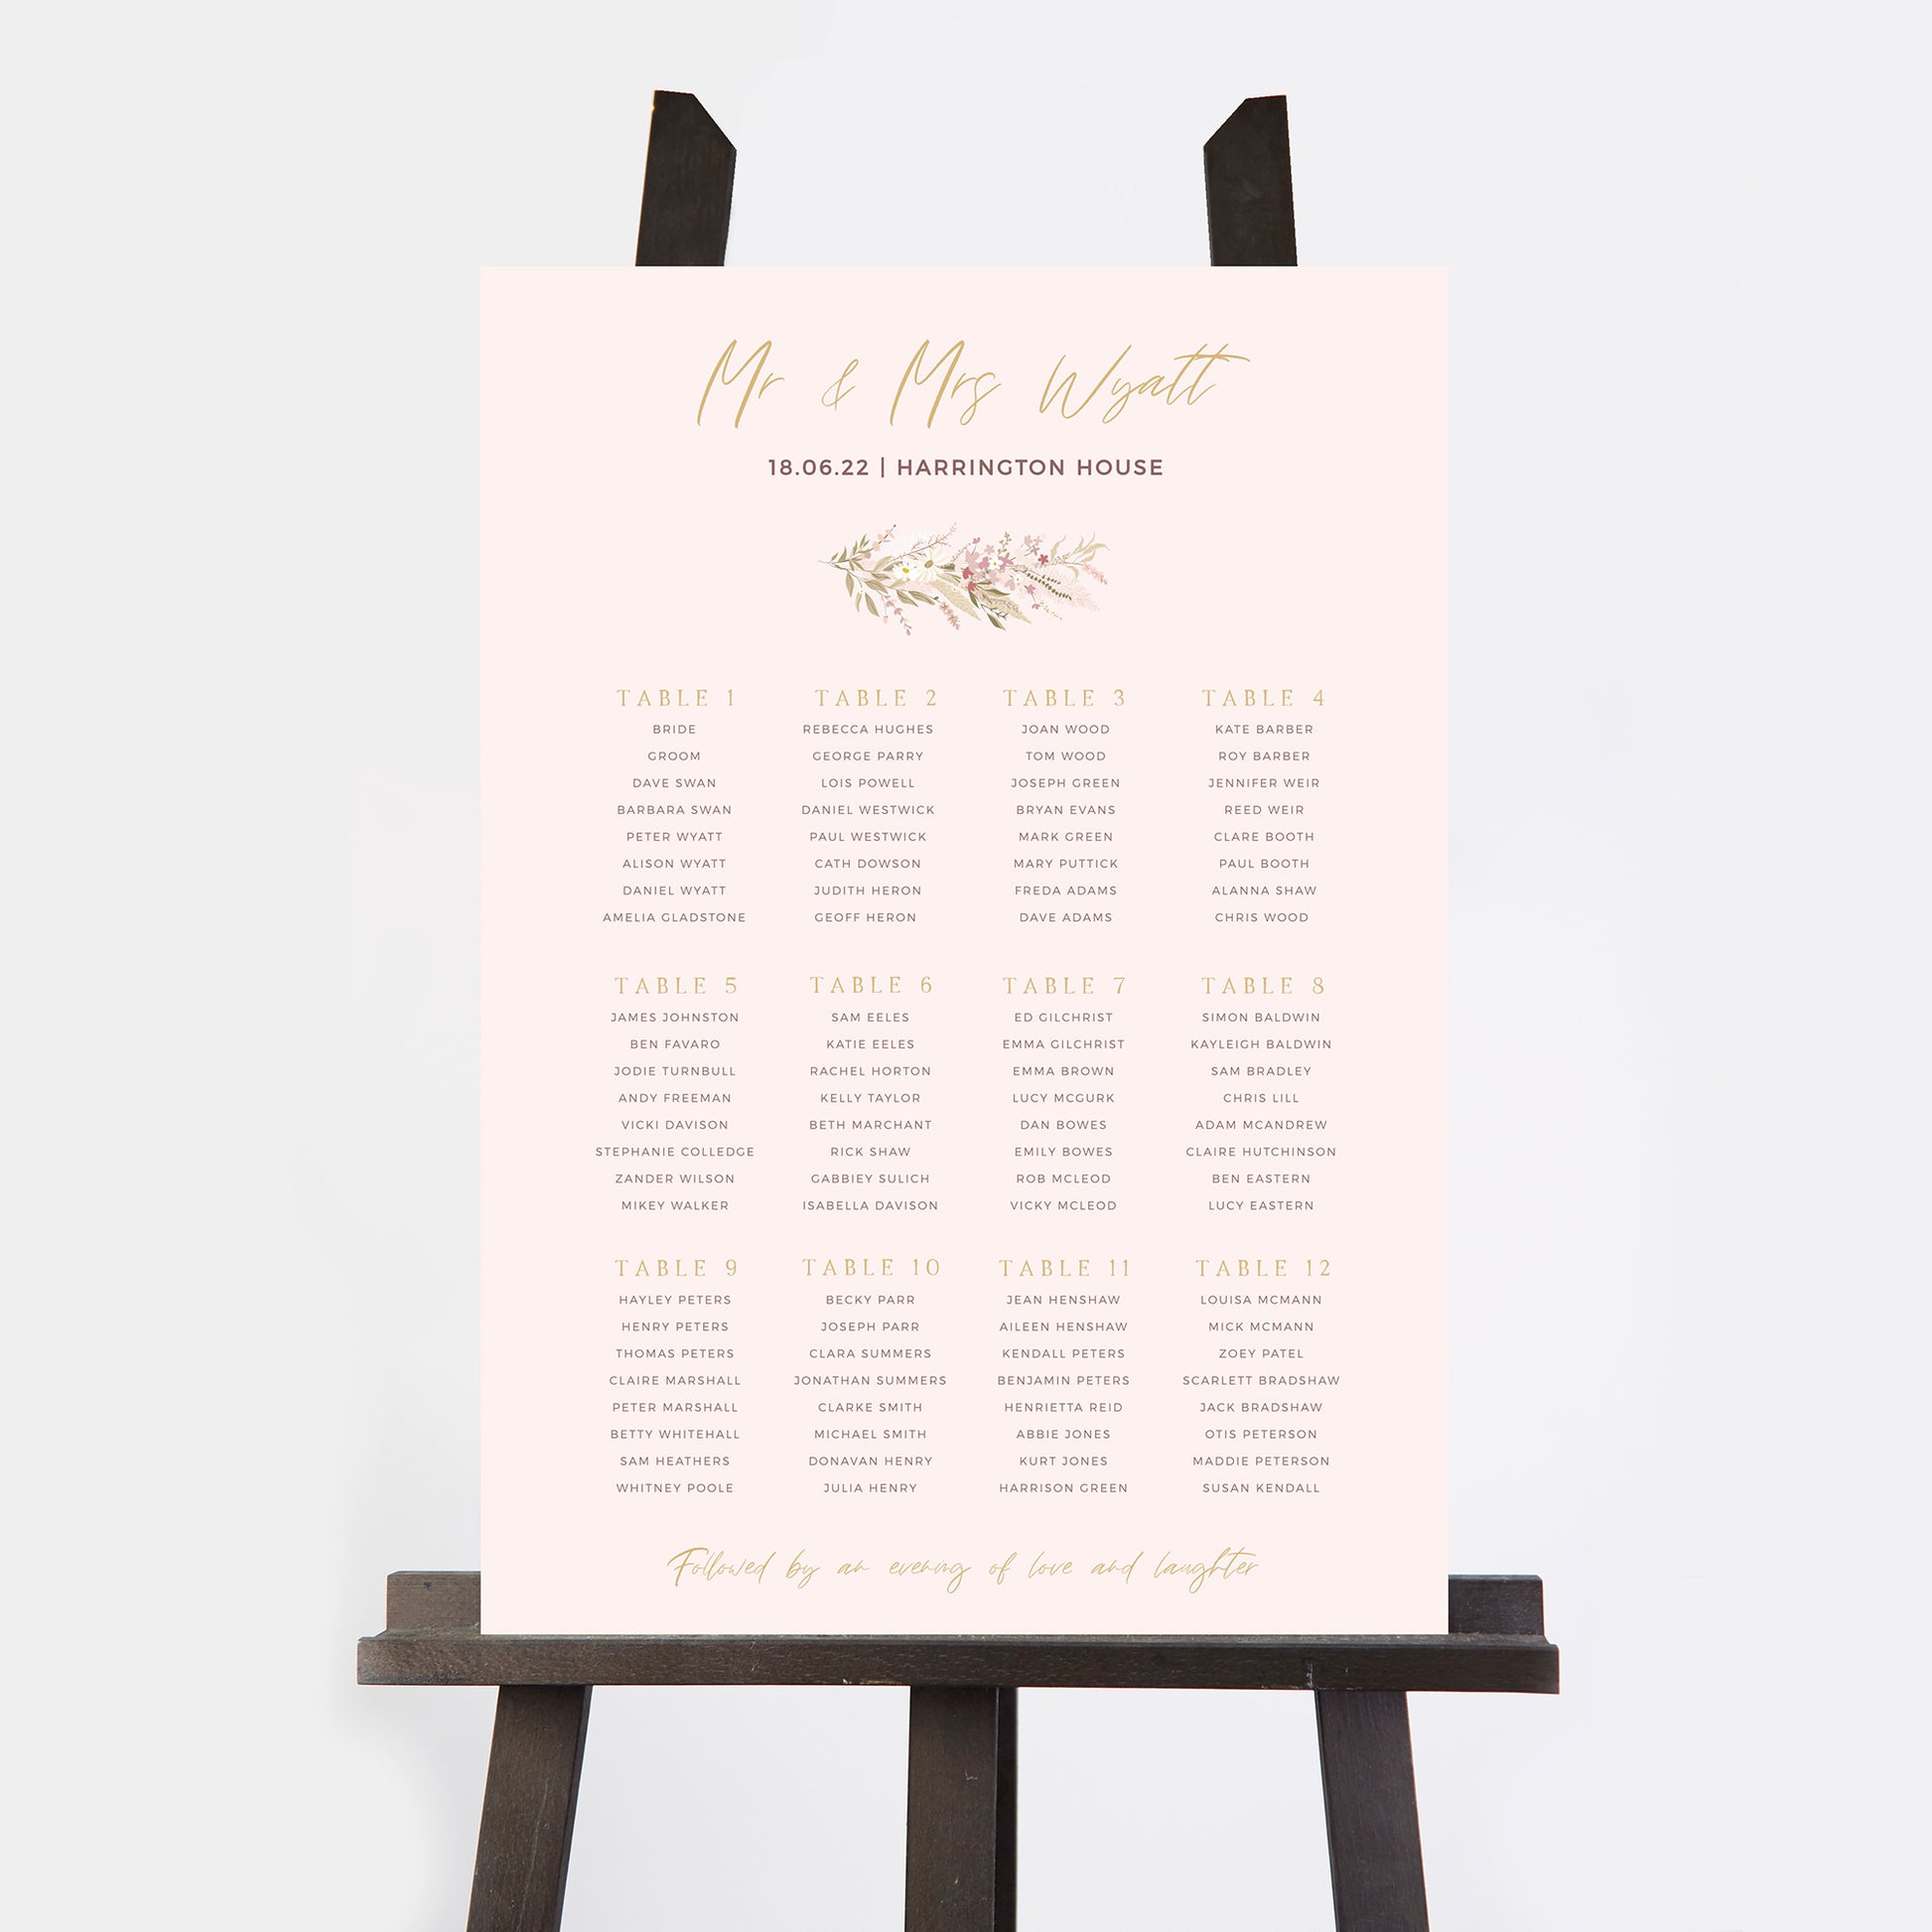 Mr & Mrs Wyatt
18.06.22 | HARRINGTON HOUSE
TABLE 1
BRIDE
GROOM
DAVE SWAN
BARBARA SWAN
PETER WYATT
ALISON WYATT
DANIEL WYATT
AMELIA GLADSTONE
TABLE 2
REBECCA HUGHES
GEORGE PARRY
LOIS POWELL
DANIEL WESTWICK
PAUL WESTWICK
CATH DOWSON
JUDITH HERON
GEOFF HERON
TABLE 3
JOAN WOOD
TOM WOOD
JOSEPH GREEN
BRYAN EVANS
MARK GREEN
MARY PUTTICK
FREDA ADAMS
DAVE ADAMS
TABLE 4
KATE BARBER
ROY BARBER
JENNIFER WEIR
REED WEIR
CLARE BOOTH
PAUL BOOTH
ALANNA SHAW
CHRIS WOOD
TABLE 5
JAMES JOHNSTON
BEN FAVARO
JODIE TURNBULL
ANDY FREEMAN
VICKI DAVISON
STEPHANIE COLLEDGE
ZANDER WILSON
MIKEY WALKER
TABLE 6
SAM EELES
KATIE EELES
RACHEL HORTON
KELLY TAYLOR
BETH MARCHANT
RICK SHAW
GABBIEY SULICH
ISABELLA DAVISON
TABLE 7
ED GILCHRIST
EMMA GILCHRIST
EMMA BROWN
LUCY MCGURK
DAN BOWES
EMILY BOWES
ROB MCLEOD
VICKY MCLEOD
TABLE 8
SIMON BALDWIN
KAYLEIGH BALDWIN
SAM BRADLEY
CHRIS LILL
ADAM MCANDREW
CLAIRE HUTCHINSON
BEN EASTERN
LUCY EASTERN
TABLE 9
HAYLEY PETERS
HENRY PETERS
THOMAS PETERS
CLAIRE MARSHALL
PETER MARSHALL
BETTY WHITEHALL
SAM HEATHERS
WHITNEY POOLE
TABLE 10
BECKY PARR
JOSEPH PARR
CLARA SUMMERS
JONATHAN SUMMERS
CLARKE SMITH
MICHAEL SMITH
DONAVAN HENRY
JULIA HENRY
TABLE 11
JEAN HENSHAW
AILEEN HENSHAW
KENDALL PETERS
BENJAMIN PETERS
HENRIETTA REID
ABBIE JONES
KURT JONES
HARRISON GREEN
TABLE 12
LOUISA MCMANN
MICK MCMANN
ZOEY PATEL
SCARLETT BRADSHAW
JACK BRADSHAW
OTIS PETERSON
MADDIE PETERSON
SUSAN KENDALL
Followed by an evening of love and laughter